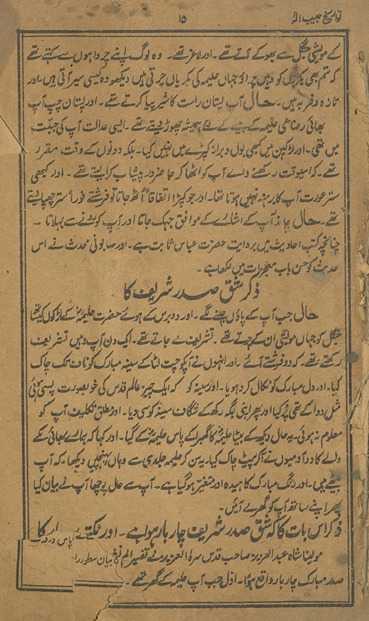 تواریخ حبیب الہ ۱۵
کے مویشی جنگل سے بھوکے آتے تھے۔ اور لاغر تھے۔ وہ لوگ اپنے چرواہوں سے کہتے تھے
کہ تم بھی بکریوں کو وہیں چراؤ جہاں حلیمہ کی بکریاں چرتی ہیں دیکھو وہ کیسی سیر آتی ہیں۔ اور
تازہ و فربہ ہیں۔ حال آپ پستان راست کا شیر پیا کرتے تھے۔ اور پستان چپ آپ
بھائی رضاعی حلیمہ کے بیٹے کے لئے ہمیشہ چھوڑ دیتے تھے۔ ایسی عدالت آپ کی جبلت
میں تھی۔ اور لڑکپن میں کبھی بول و براز کپڑے میں نہیں کیا۔ بلکہ دونوں کے وقت مقرر تھے
کہ اسیوقت رکھنے والے آپ کو اٹھا کر جا ضرور پیشاب کرا لیتے تھے۔ اور کبھی
ستر عورت آپ کا برہنہ نہیں ہوتا تھا۔ اور جو کپڑا اتفاقاً اٹھ جاتا تو فرشتے فوراً ستر چھپا دیتے
تھے۔ حال چاند آپ کے اشارے کے موافق جھک جاتا اور آپ کو رونے سے بہلاتا۔
چنانچہ کتب احادیث میں بروایت حضرت عباس ثابت ہے۔ اور صابونی محدث نے اس
حدیث کو حسن باب معجزات میں لکھا ہے۔
ذکر شق صدر شریف کا
حال جب آپ کے پاؤں چلنے لگے۔ اور دو برس کے ہوئے حضرت حلیمہ کے لڑکوں کے ساتھ
جنگل کو جہاں مویشی ان کے چرتے تھے۔ تشریف لے جاتے تھے۔ ایک دن آپ وہیں تشریف
رکھتے تھے۔ کہ دو فرشتے آئے۔ اور انہوں نے آپکو چت لٹا کے سینہ مبارک کو ناف تک چاک
کیا۔ اور دل مبارک کو نکال کر دھویا۔ اور سینہ کو کہ ایک چیز عالم قدس کی خوبصورت پسی ہوئی
مثل دوا کے تھی پر کیا اور پھر اپنی جگہ رکھ کے شگاف سینہ کو سی دیا۔ اور مطلق تکلیف آپ کو
معلوم نہ ہوئی۔ یہ حال دیکھ کے بیٹا حلیمہ کا گھبرا کے پاس حلیمہ کے گیا۔ اور کہا کہ ہمارے بھائی مکے
والے کا دو آدمیوں نے آکر پیٹ چاک کیا۔ یہ سن کر حلیمہ جلدی سے وہاں پہنچیں دیکھا کہ آپ
بیٹھے ہیں۔ اور رنگ مبارک کاہیدہ اور متغیر ہو گیا ہے۔ آپ سے حال پوچھا آپ نے بیان کیا
پھر اپنے ساتھ آپ کو گھر لے آئیں۔
ذکر اس بات کا کہ شق صدر شریف چار بار ہوا ہے۔ اور نکتے کا
مولینا شاہ عبد العزیز صاحب قدس سرہ العزیز نے تفسیر الم نشرح میں
صدر مبارک چار بار واقع ہوا۔ اول جب آپ حلیمہ کے گھر تھے۔